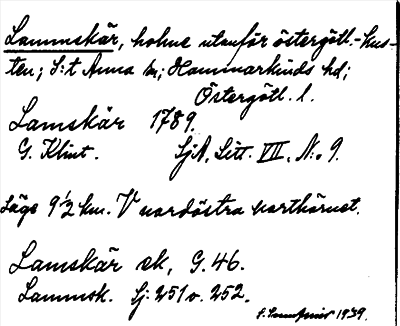 Lammskär, holme utanför östergötl.-kus-
ten; S:t Anna sn; Hammarkinds hd;
Östergötl. l.
Lamskär 1789.
G. Klint. SjA, Litt. VII, No. 9.
Läge 9½ km. V nordöstra karthörnet.
Lamskär ek, G. 46.
Lammsk. Sj: 251 o. 252.
1939.